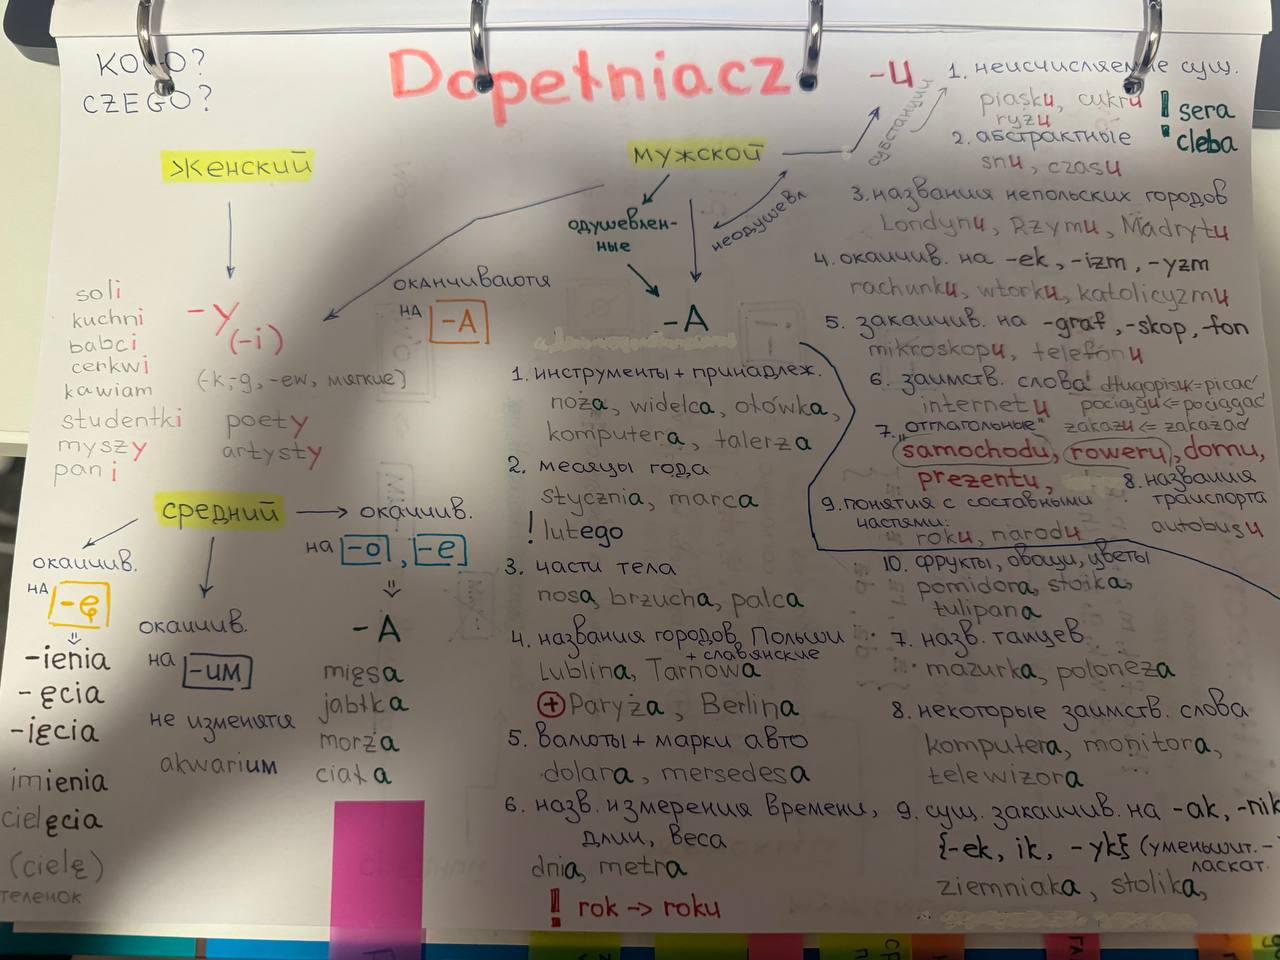 KOGO?
CZEGO?
Dopełniacz
Женский
soli
kuchni
babci
cerkwi
kawiarn
studentki
myszy
pani
-Y
(-i)
(-k,-g, -ew, мягкие)
poety
artysty
мужской
оканчиваются
на -A
одушевлен-
ные
неодушевл
-A
1. инструменты + принадлеж.
noża, widelca, ołówka,
komputera, talerza
2. месяцы года
stycznia, marca
! lutego
3. части тела
nosa, brzucha, palca
4. названия городов Польши
+ славянские
Lublina, Tarnowa
+ Paryża, Berlina
5. валюты + марки авто
dolara, mersedesa
6. назв. измерения времени,
длин, веса
dnia, metra
! rok -> roku
-u
субстанции
1. неисчисляемые сущ.
piasku, cukru
ryżu
! sera
! cleba
2. абстрактные
snu, czasu
3. названия непольских городов
Londynu, Rzymu, Madrytu
4. оканчив. на -ek, -izm, -yzm
rachunku, wtorku, katolicyzmu
5. заканчив. на -graf, -skop, -fon
mikroskopu, telefonu
6. заимств. слова
internetu
długopisu <= pisać
pociągu <= pociągać
7. „отглагольные"
zakazu <= zakazać
samochodu, roweru, domu,
prezentu,
8. названия
транспорта
autobusu
9. понятия с составными
частями:
roku, narodu
10. фрукты, овощи, цветы
pomidora, stoika,
tulipana
7. назв. танцев
mazurka, poloneza
8. некоторые заимств. слова
komputera, monitora,
telewizora
9. сущ. заканчив. на -ak, -nik
{-ek, ik, -yk} (уменьшит.-
ласкат.
ziemniaka, stolika,
средний
окончив.
на -ę
-ienia
-ęcia
-ięcia
imienia
cielęcia
(cielę)
теленок
окончив.
на -um
не изменятся
akwarium
окончив.
на -o, -e
-A
mięsa
jabłka
morza
ciała